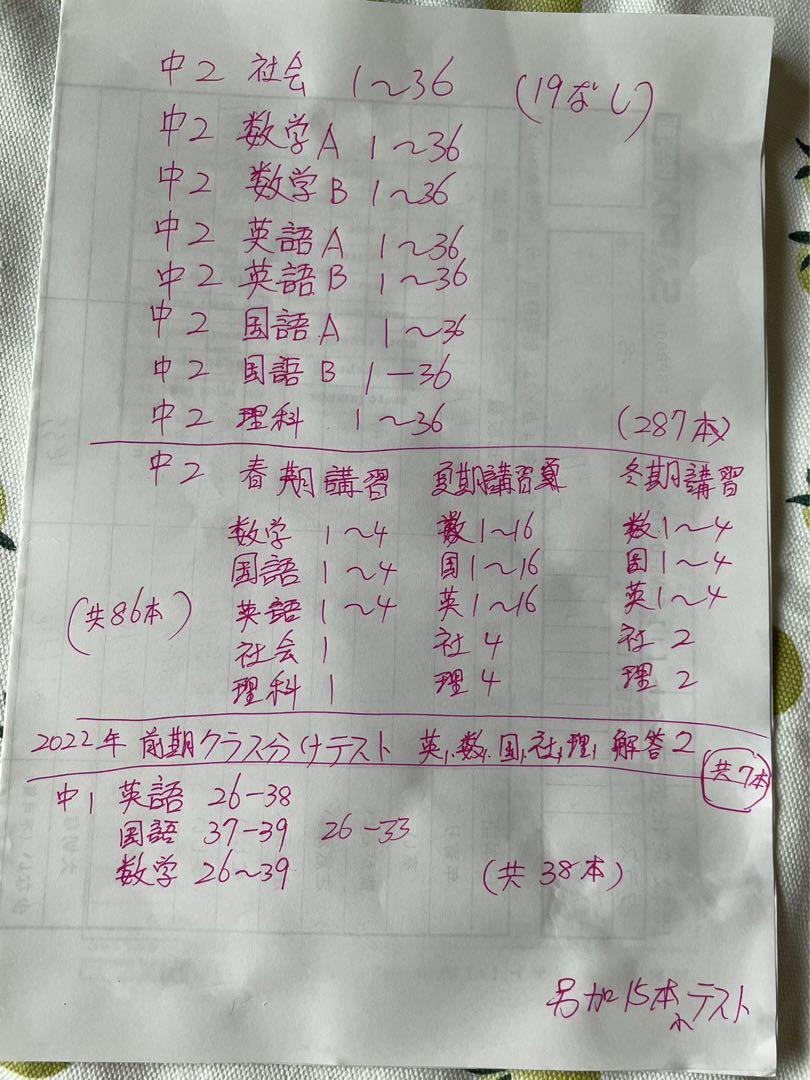 中2 社会 1~36 (19なし)
中2 数学A 1~36
中2 数学B 1~36
中2 英語A 1~36
中2 英語B 1~36
中2 国語A 1~36
中2 国語B 1-36
中2 理科 1~36 (287本)
中2 春期講習 夏期講習夏 冬期講習
数学 1~4 数1~16 数1~4
国語 1~4 国1~16 国1~4
(共86本) 英語 1~4 英1~16 英1~4
社会 1 社 4 社 2
理科 1 理 4 理 2
2022年 前期クラス分けテスト 英,数,国,社,理, 解答2 共7本
中1 英語 26-38
国語 37-39 26-33
数学 26~39 (共 38本)
另加15本 テスト